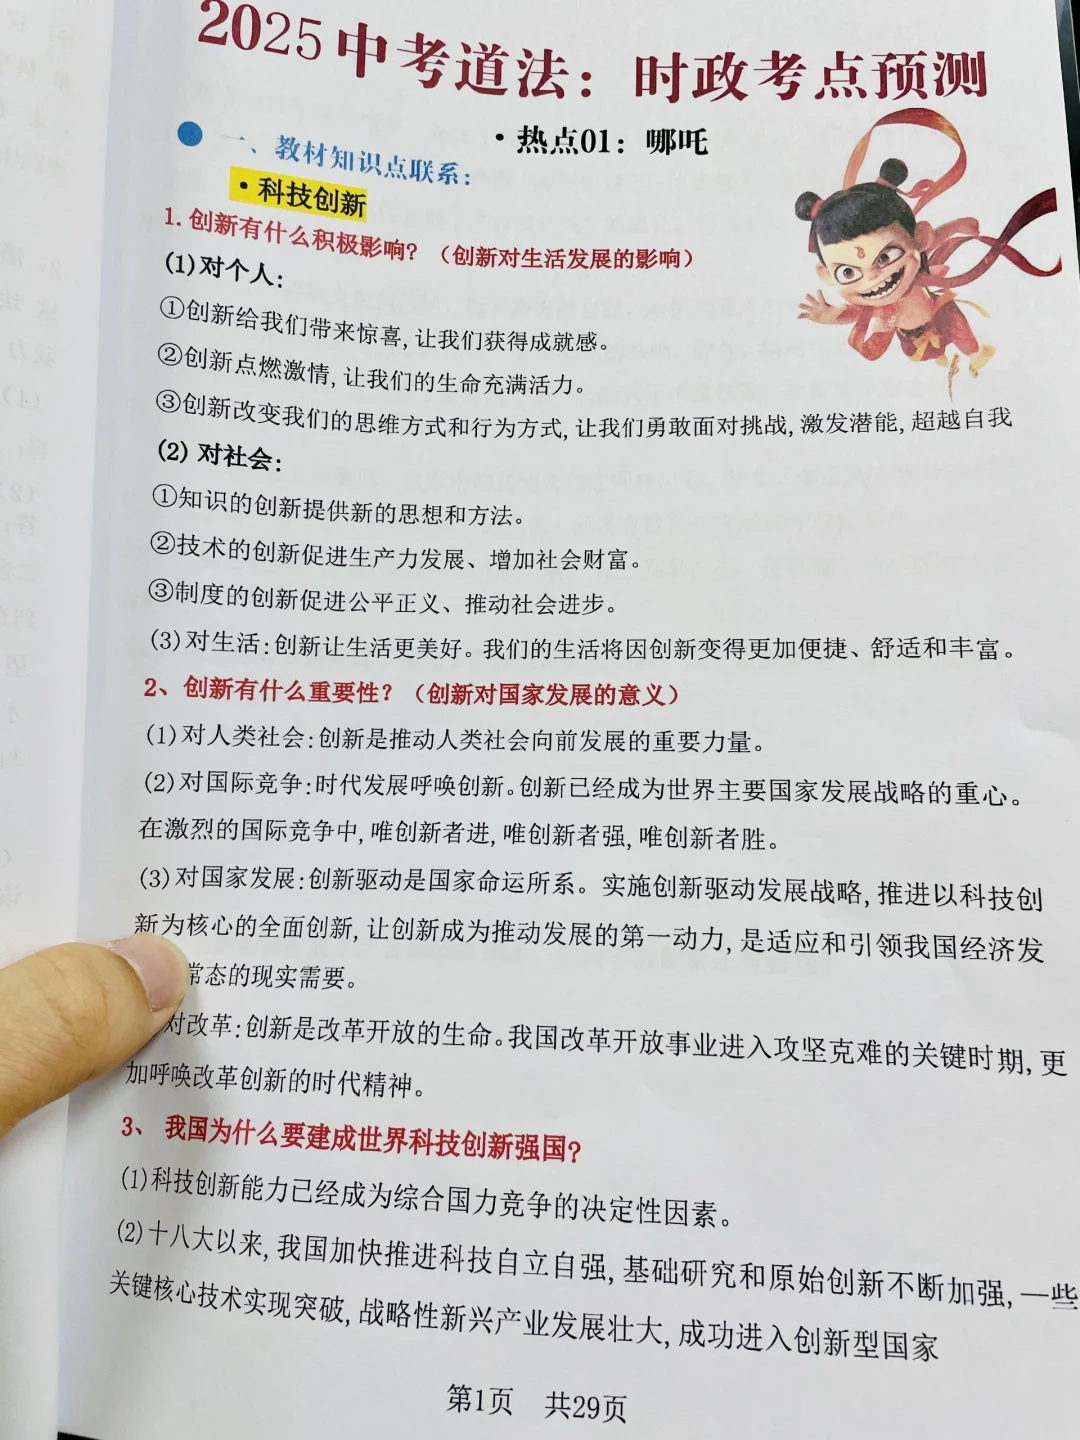 2025中考道法：时政考点预测
·热点01：哪吒
一、教材知识点联系：
·科技创新
1.创新有什么积极影响？（创新对生活发展的影响）
(1)对个人：
①创新给我们带来惊喜，让我们获得成就感。
②创新点燃激情，让我们的生命充满活力。
③创新改变我们的思维方式和行为方式，让我们勇敢面对挑战，激发潜能，超越自我
(2) 对社会：
①知识的创新提供新的思想和方法。
②技术的创新促进生产力发展、增加社会财富。
③制度的创新促进公平正义、推动社会进步。
(3) 对生活：创新让生活更美好。我们的生活将因创新变得更加便捷、舒适和丰富。
2、创新有什么重要性？（创新对国家发展的意义）
(1)对人类社会：创新是推动人类社会向前发展的重要力量。
(2) 对国际竞争：时代发展呼唤创新。创新已经成为世界主要国家发展战略的重心。
在激烈的国际竞争中，唯创新者进，唯创新者强，唯创新者胜。
(3)对国家发展：创新驱动是国家命运所系。实施创新驱动发展战略，推进以科技创
新为核心的全面创新，让创新成为推动发展的第一动力，是适应和引领我国经济发
常态的现实需要。
对改革：创新是改革开放的生命。我国改革开放事业进入攻坚克难的关键时期，更
加呼唤改革创新的时代精神。
3、 我国为什么要建成世界科技创新强国？
(1)科技创新能力已经成为综合国力竞争的决定性因素。
(2)十八大以来，我国加快推进科技自立自强，基础研究和原始创新不断加强，一些
关键核心技术实现突破，战略性新兴产业发展壮大，成功进入创新型国家
第1页 共29页